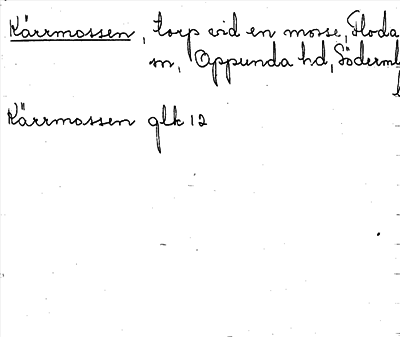 Kärrmossen, torp vid en mosse, Floda
sn, Oppunda hd, Söderml
Kärrmossen glk 12